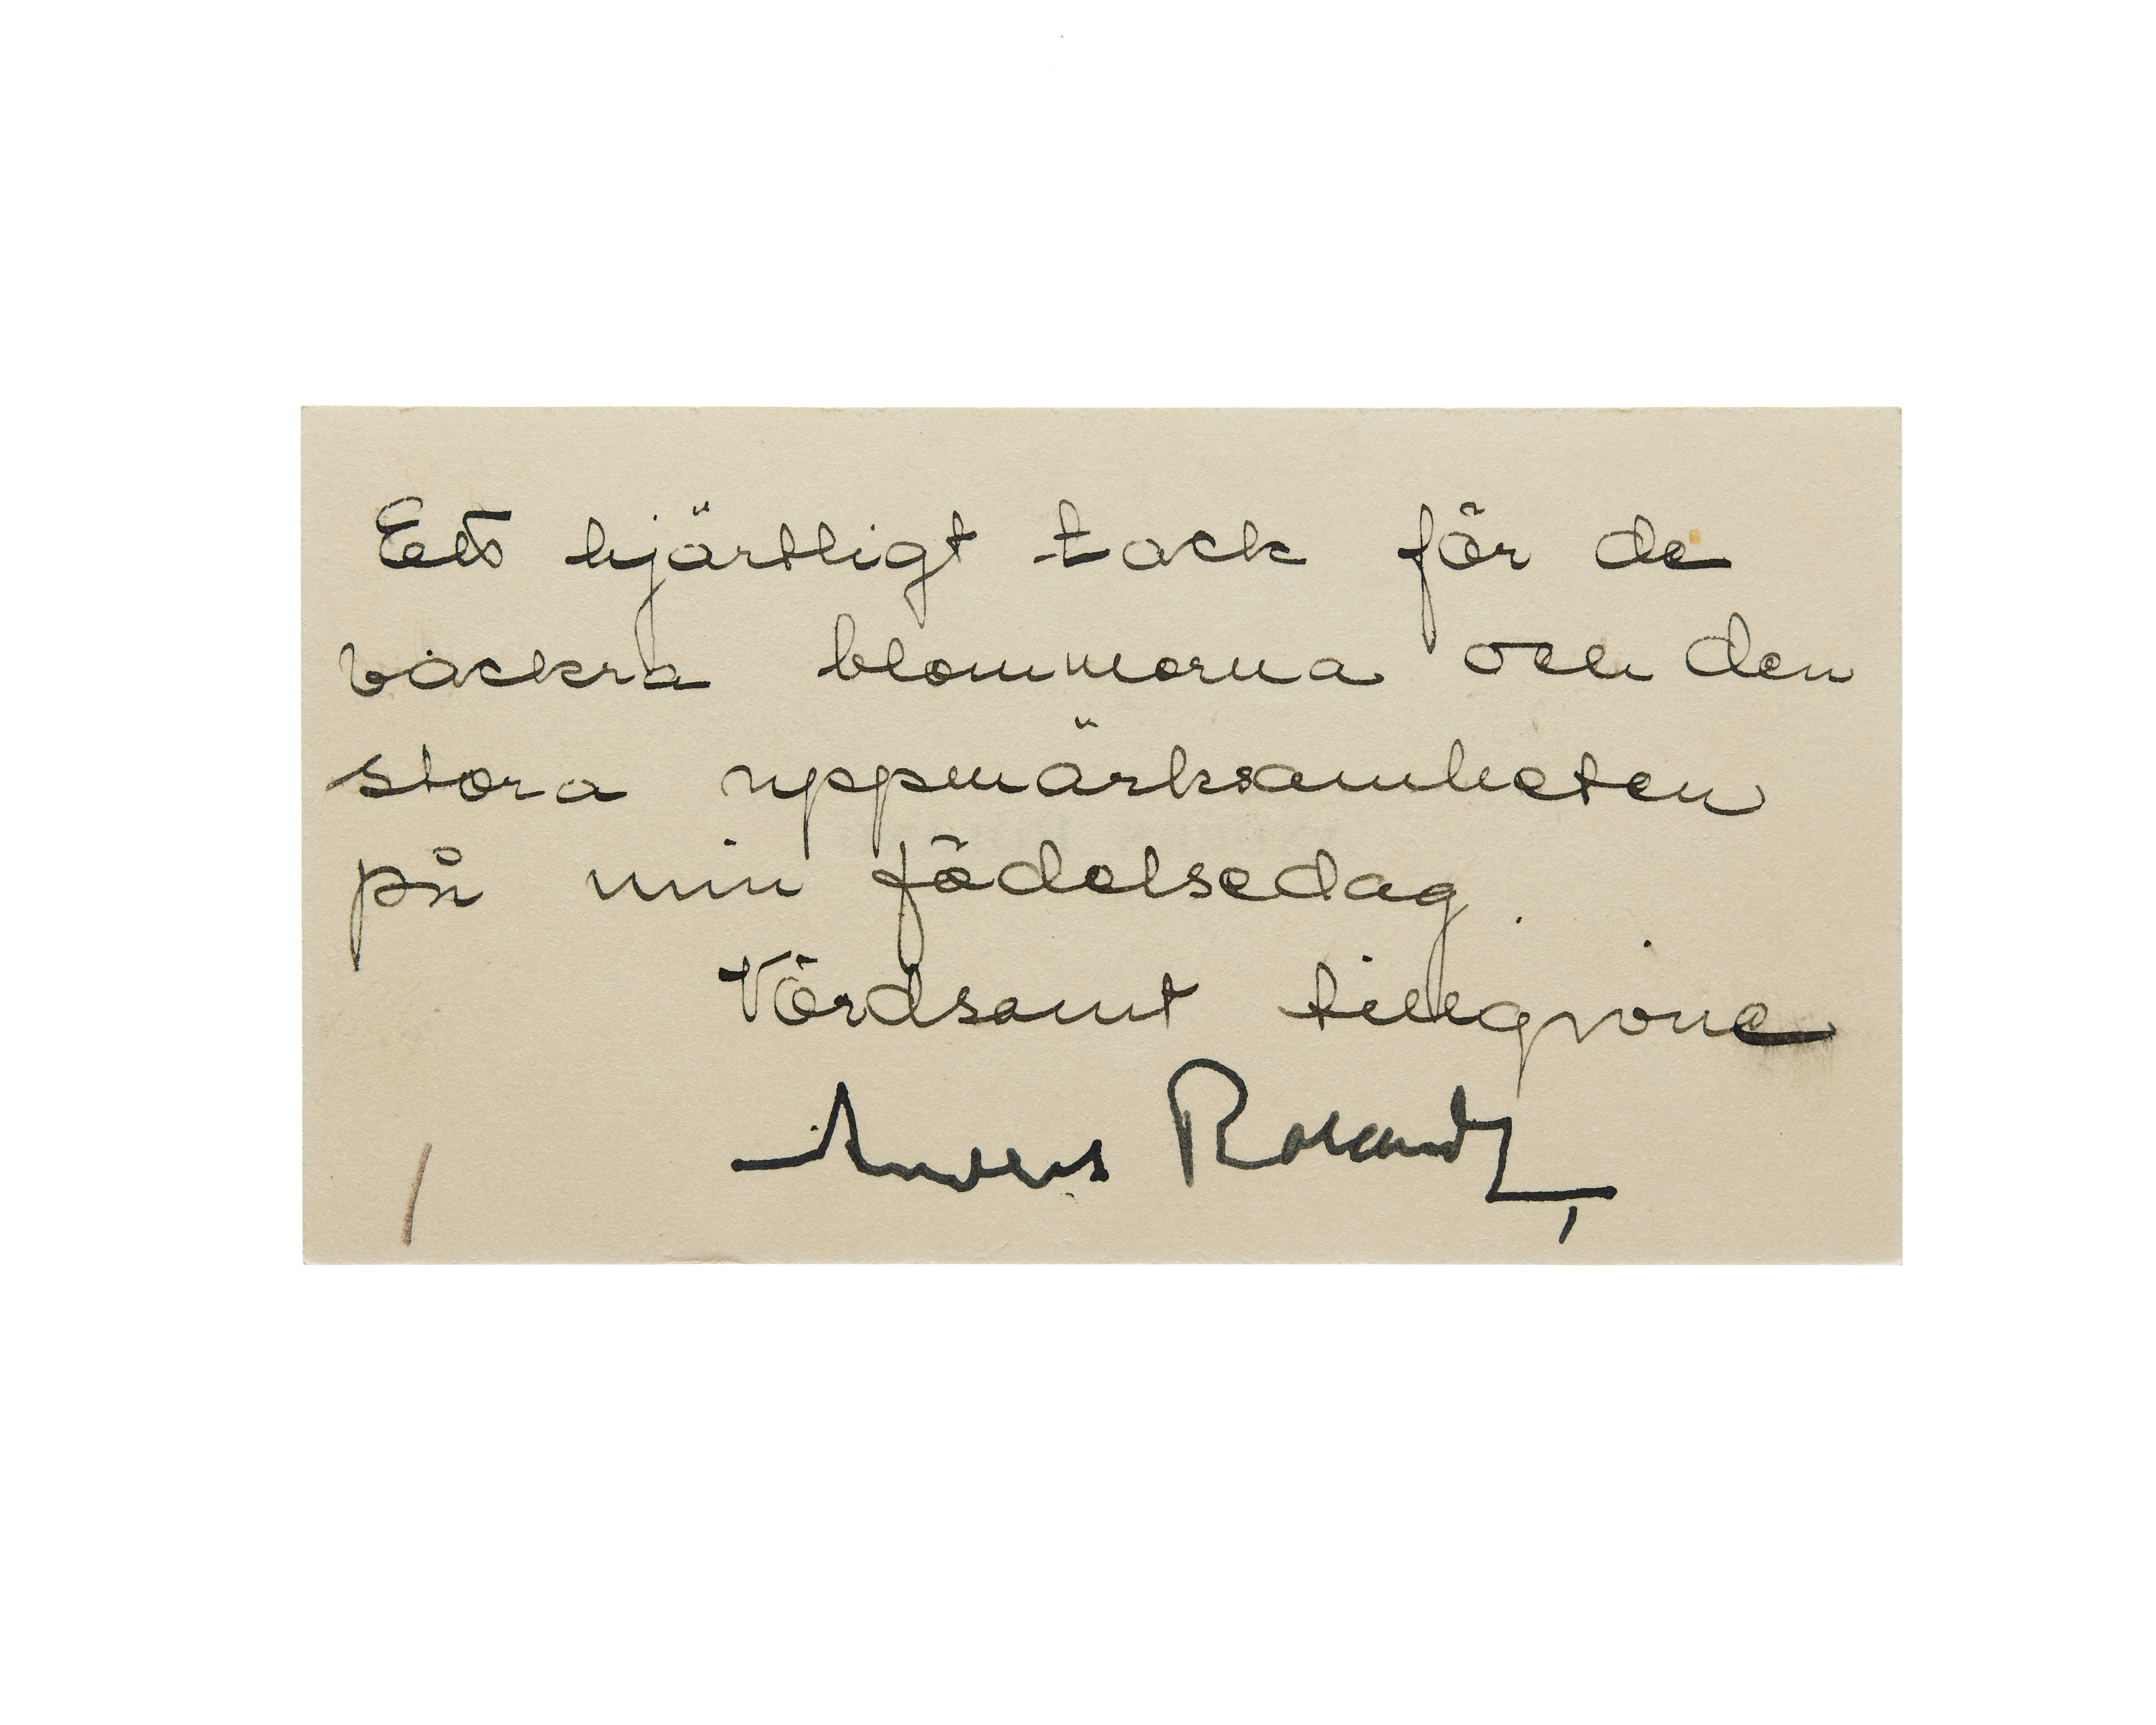 Ett hjärtligt tack för de
vackra blommorna och den
stora uppmärksamheten
på min födelsedag.
Vördsamt tillgivne
Anders